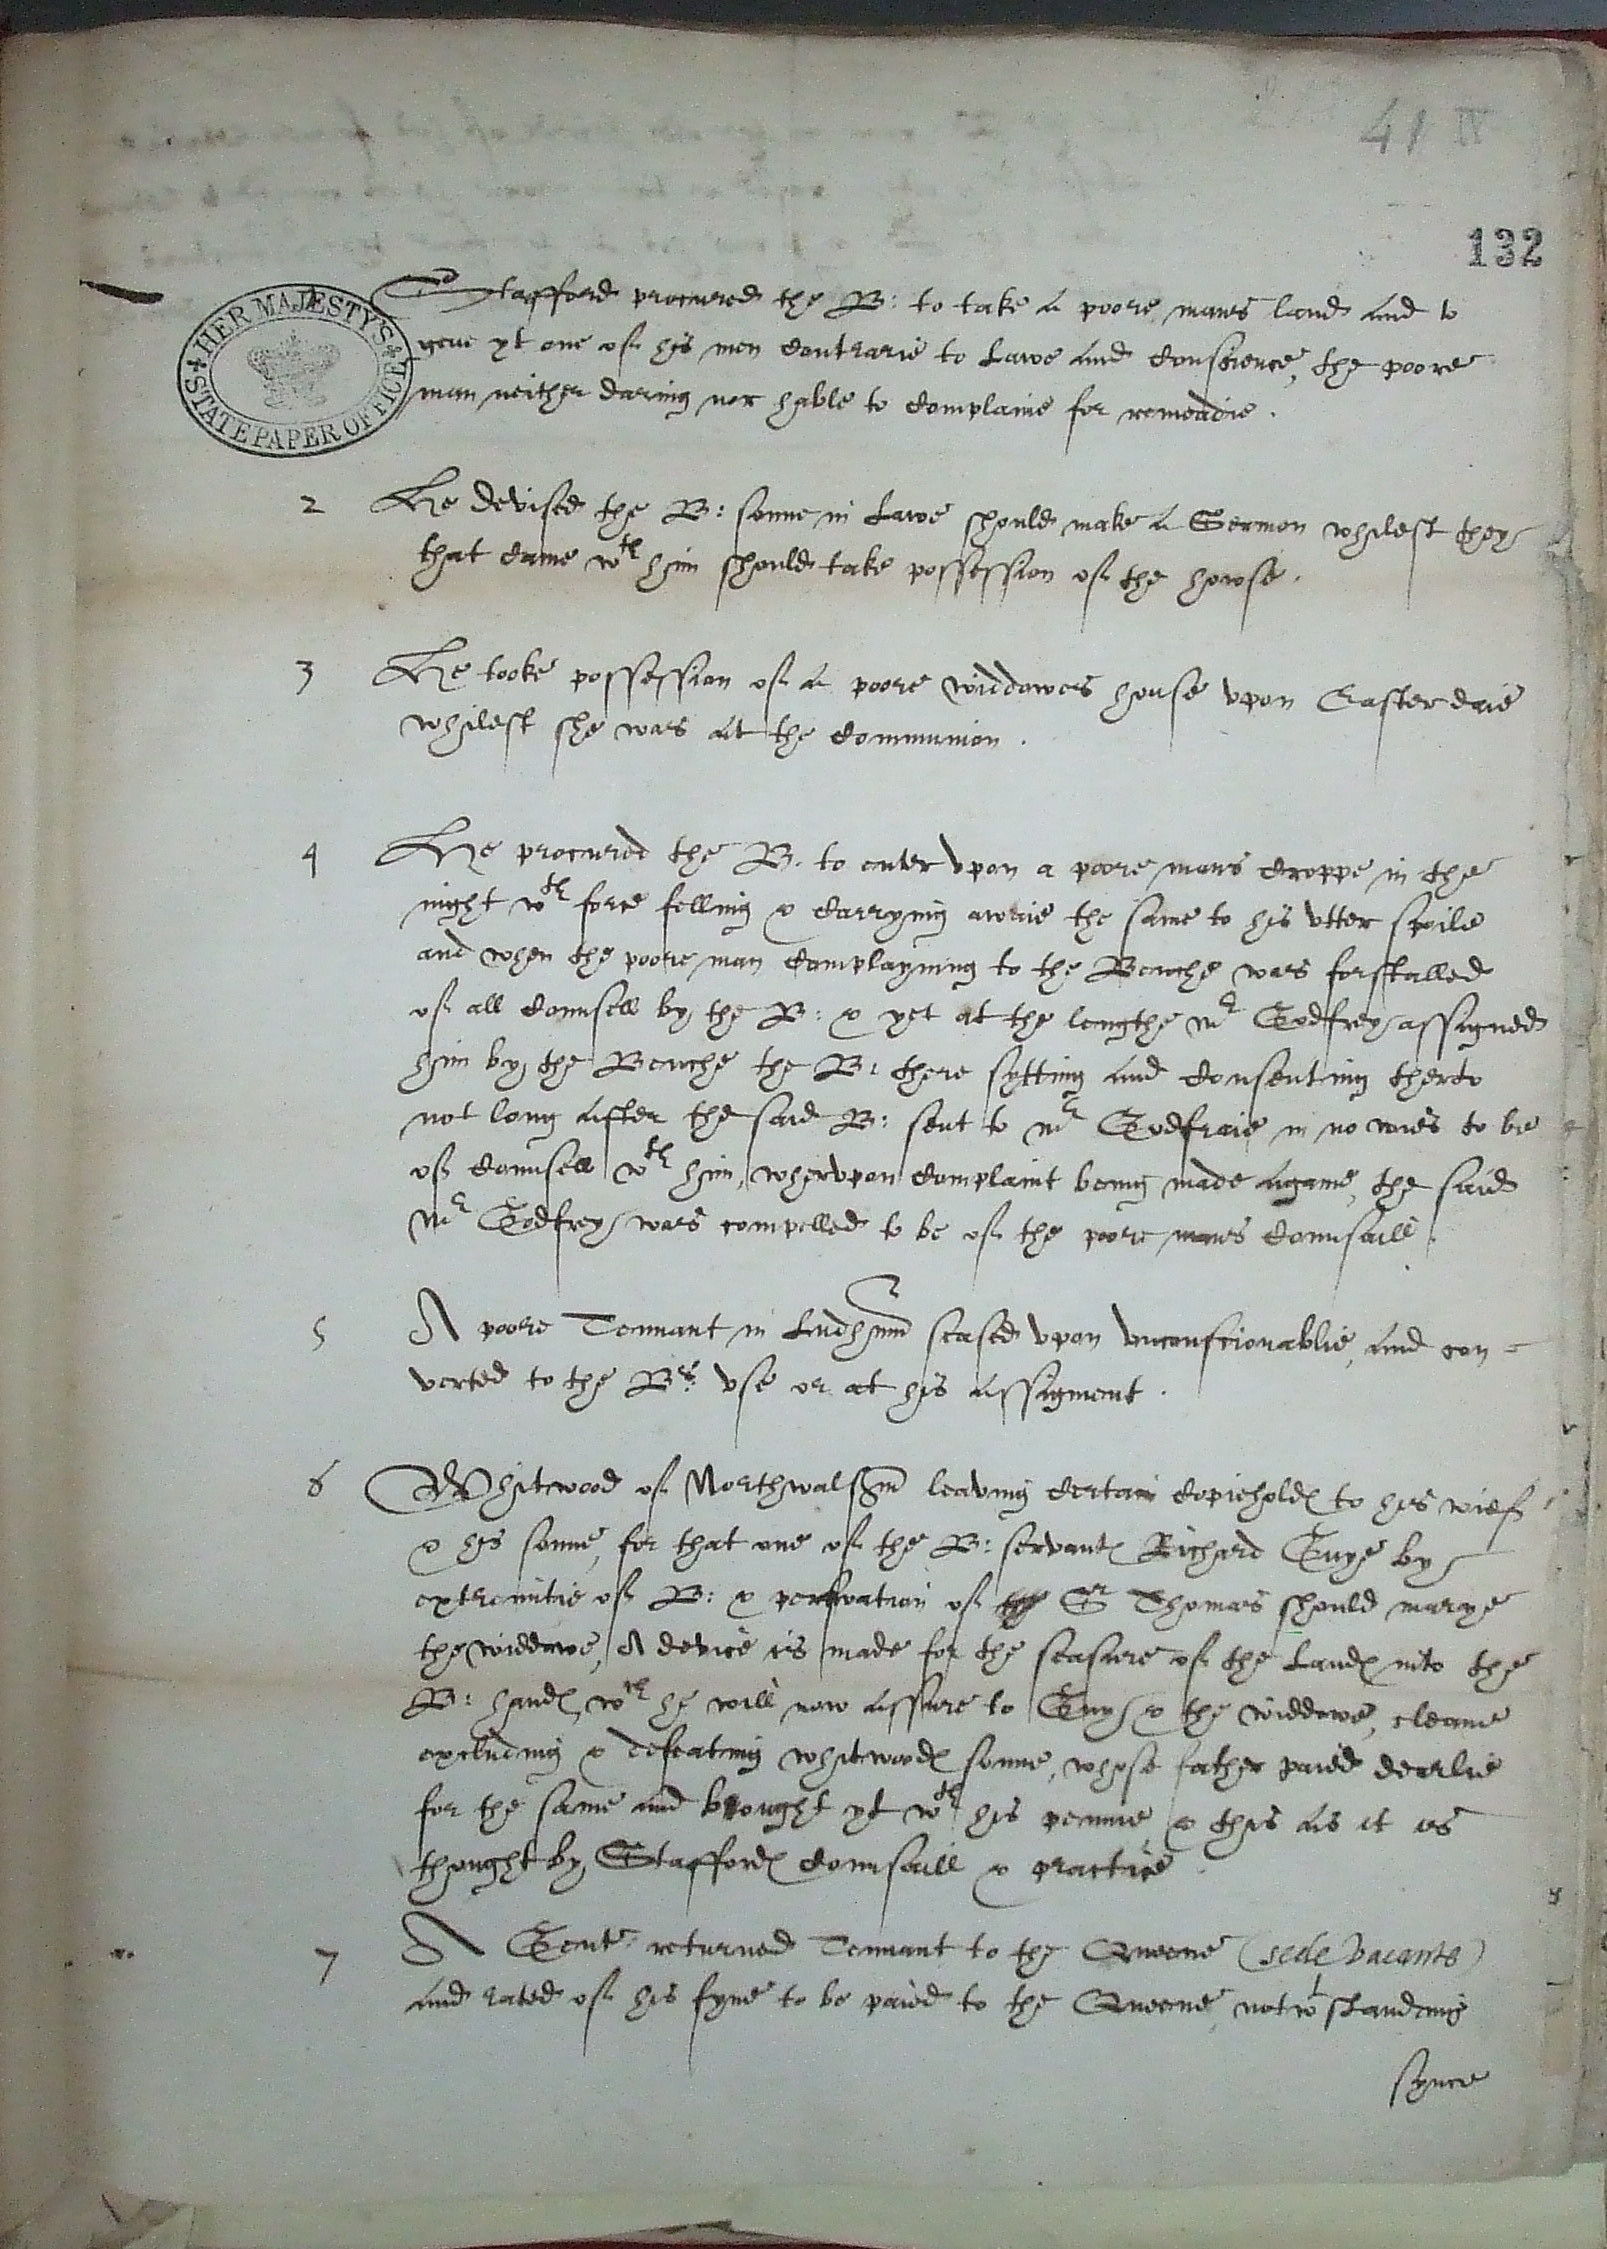 41 IV
132
HER MAJESTY'S STATE PAPER OFFICE
Stafford procured the B: to take a poore mans land and to
geue yt one of his men contrarie to Lawe and conscience, the poore
man neither daring nor hable to complaine for remeadie.
2 He devised the B: sonne in Lawe should make a Sermon whilest they
that came wth him should take possession of the howse.
3 He tooke possession of a poore widdowes house vpon Easter daie
whilest she was at the communion.
4 He procured the B. to enter vpon a poore mans croppe in the
night wth force felling & carrying awaie the same to his vtter spoile
and when the poore man complayning to the Benche was forstalled
of all counsell by the B: & yet at the lengthe Mr Godfrey assigned
him by the Benche the B: there sytting and consenting therto
not long after the said B: sent to Mr Godfraie in no wies to be
of counsell wth him, whervpon complaint being made againe, the said
Mr Godfrey was compelled to be of the poore mans counsaill.
5 A poore Tennant in Ludham seased vpon vnconscionablie, and con-
verted to the Bs: vse or at his assigment.
6 Whitwood of Northwalsham leaving certain copieholdes to his wief
& his sonne, for that one of the B: servantes Richard Guye by
extremitie of B: & perswation of Sr Thomas should marye
the widdowe, A device is made for the seasure of the Landes into the
B: handes, wch he will now assure to Guy & the widdowe, cleane
excluding & defeating whitwoodes sonne, whose father paied dearlie
for the same and bought yt wth his pennie & this as it is
thought by Staffordes counsaill & practice.
7 A Gent: returned Tennant to the Queene (sede vacante)
and rated of his fyne to be paied to the Queene, notwtstanding
synce